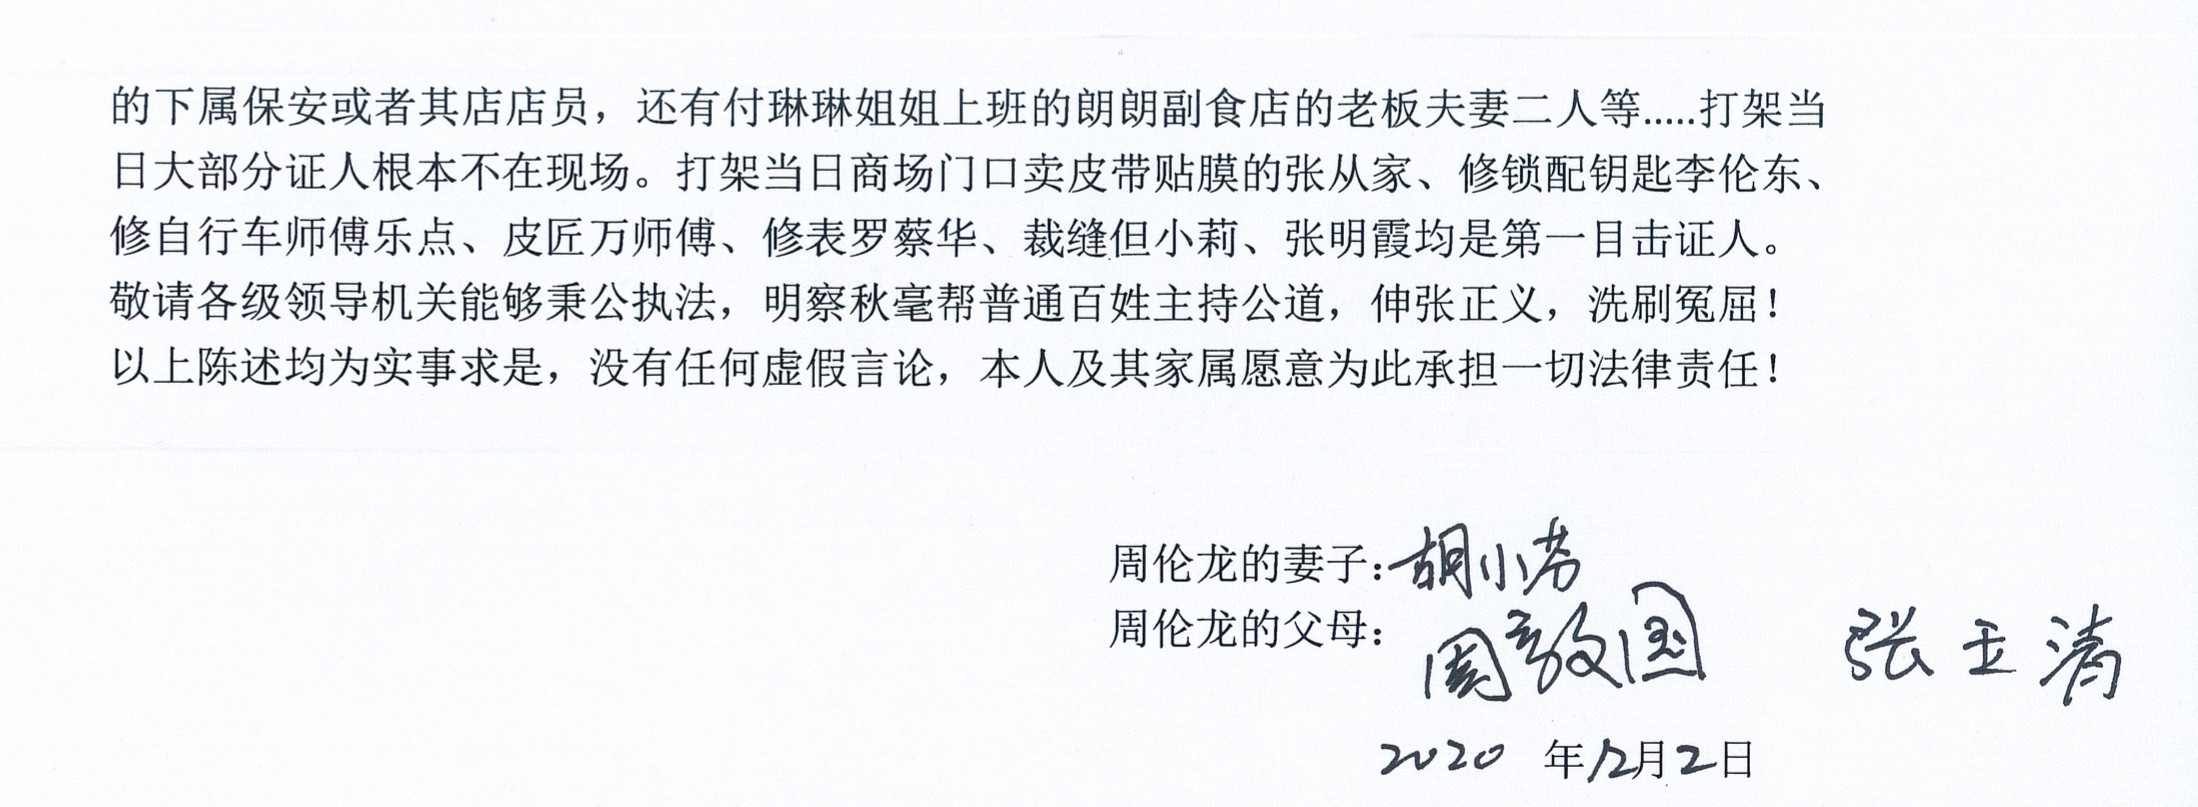 的下属保安或者其店店员，还有付琳琳姐姐上班的朗朗副食店的老板夫妻二人等.....打架当
日大部分证人根本不在现场。打架当日商场门口卖皮带贴膜的张从家、修锁配钥匙李伦东、
修自行车师傅乐点、皮匠万师傅、修表罗蔡华、裁缝但小莉、张明霞均是第一目击证人。
敬请各级领导机关能够秉公执法，明察秋毫帮普通百姓主持公道，伸张正义，洗刷冤屈！
以上陈述均为实事求是，没有任何虚假言论，本人及其家属愿意为此承担一切法律责任！
周伦龙的妻子：胡小芳
周伦龙的父母：周 国 张玉清
2020 年12月2日